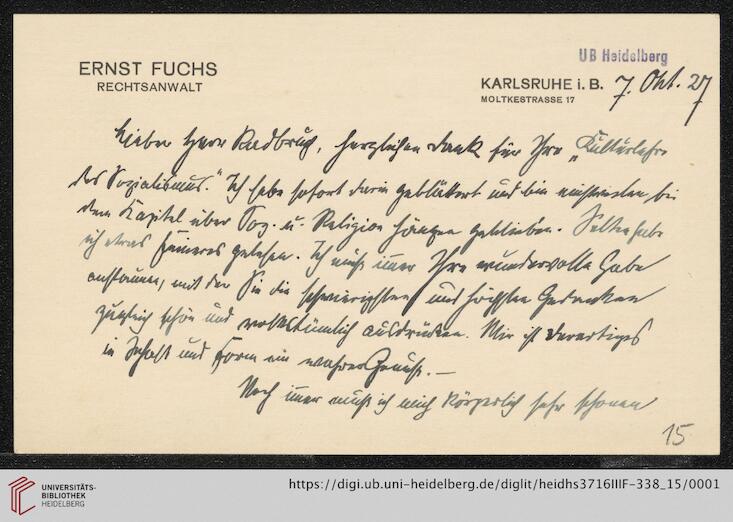 ERNST FUCHS
RECHTSANWALT
UB Heidelberg
KARLSRUHE i. B. 7. Okt. 27
MOLTKESTRASSE 17
Lieber Herr Radbruch, herzlichen Dank für Ihre „Kulturlehre
des Sozialismus." Ich habe sofort darin geblättert und bin einstweilen bei
dem Kapitel über Soz. u. Religion hängen geblieben. Selten habe
ich etwas Feineres gelesen. Ich muß immer Ihre wundervolle Gabe
anstaunen, mit der Sie die schwierigsten und höchsten Gedanken
zugleich schön und volkstümlich ausdrücken. Mir ist derartiges
in Inhalt und Form ein wahrer Genuß. —
Noch immer muß ich mich körperlich sehr schonen
15
UNIVERSITÄTS-
BIBLIOTHEK
HEIDELBERG
https://digi.ub.uni-heidelberg.de/diglit/heidhs3716IIIF-338_15/0001